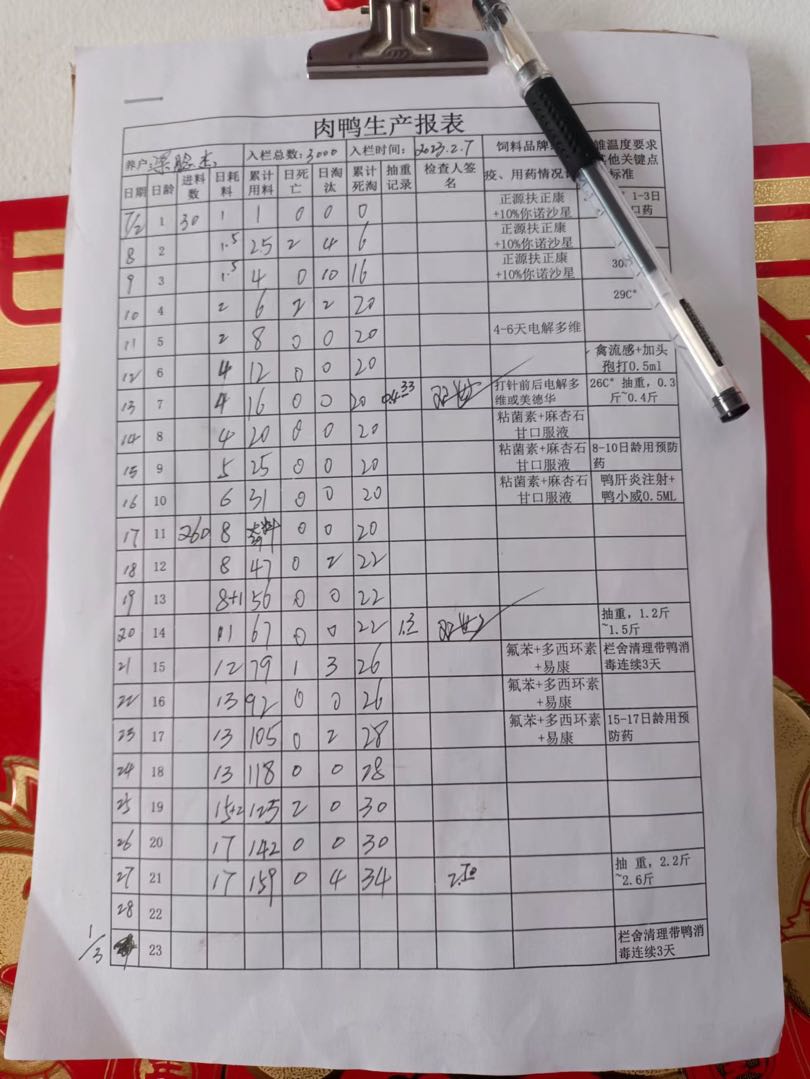 肉鸭生产报表
养户: 入栏总数:3000 入栏时间: 2023.2.7 饲料品牌 雏温度要求
疫、用药情况 其他关键点 标准
日期 日龄 进料数 日耗料 累计用料 日死亡 日淘汰 累计死淘 抽重记录 检查人签名
7/2 1 30 1 1 0 0 0 正源扶正康+10%你诺沙星 1-3日 口药
8 2 1.5 2.5 2 4 6 正源扶正康+10%你诺沙星
9 3 1.5 4 0 10 16 正源扶正康+10%你诺沙星 30
10 4 2 6 2 2 20 29C°
11 5 2 8 0 0 20 4-6天电解多维
12 6 4 12 0 0 20 禽流感+加头孢打0.5ml
13 7 4 16 0 0 20 打针前后电解多维或美德华 26C° 抽重,0.3斤~0.4斤
14 8 4 20 0 0 20 粘菌素+麻杏石甘口服液
15 9 5 25 0 0 20 粘菌素+麻杏石甘口服液 8-10日龄用预防药
16 10 6 31 0 0 20 粘菌素+麻杏石甘口服液 鸭肝炎注射+鸭小威0.5ML
17 11 260 8 39 0 0 20
18 12 8 47 0 2 22
19 13 8+1 56 0 0 22
20 14 11 67 0 0 22 1.3 抽重,1.2斤~1.5斤
21 15 12 79 1 3 26 氟苯+多西环素+易康 栏舍清理带鸭消毒连续3天
22 16 13 92 0 0 26 氟苯+多西环素+易康
23 17 13 105 0 2 28 氟苯+多西环素+易康 15-17日龄用预防药
24 18 13 118 0 0 28
25 19 15+2 125 2 0 30
26 20 17 142 0 0 30
27 21 17 159 0 4 34 抽 重,2.2斤~2.6斤
28 22
1/3 23 栏舍清理带鸭消毒连续3天